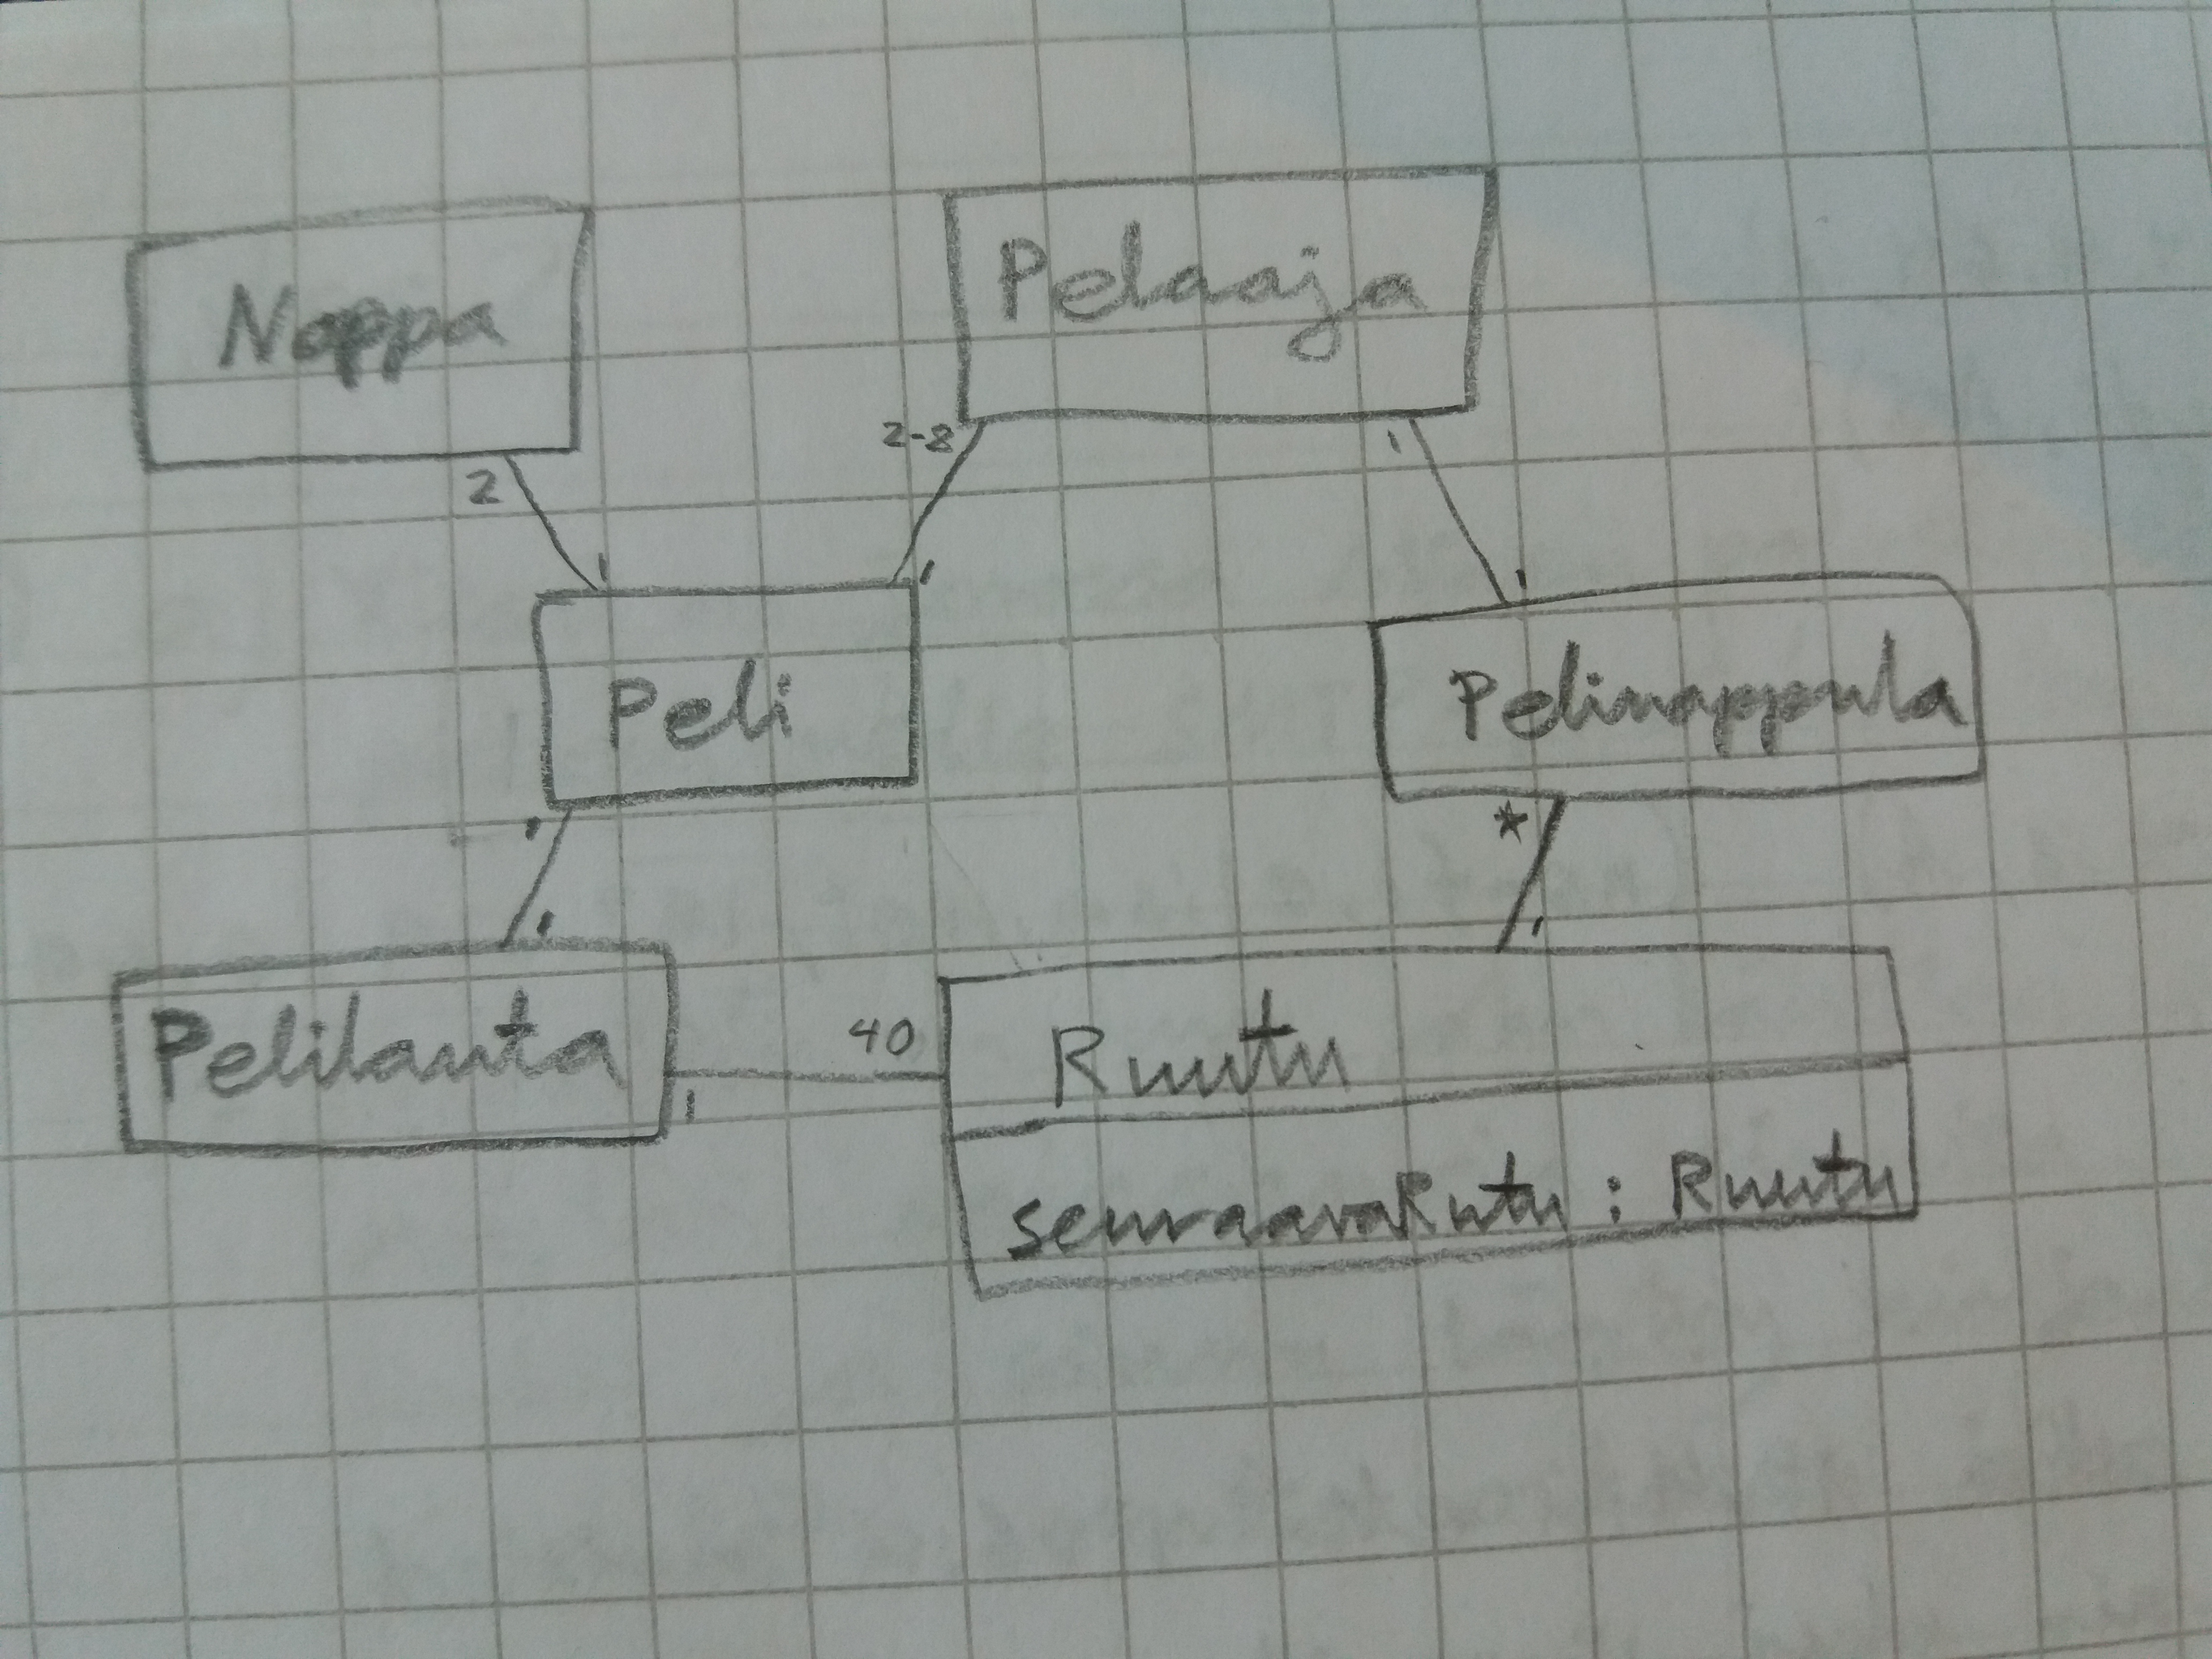 Noppa
Pelaaja
2
2-8
1
1
1
1
Peli
Pelinappula
1
*
1
1
Pelilauta
40
Ruutu
1
seuraavaRutu : Ruutu